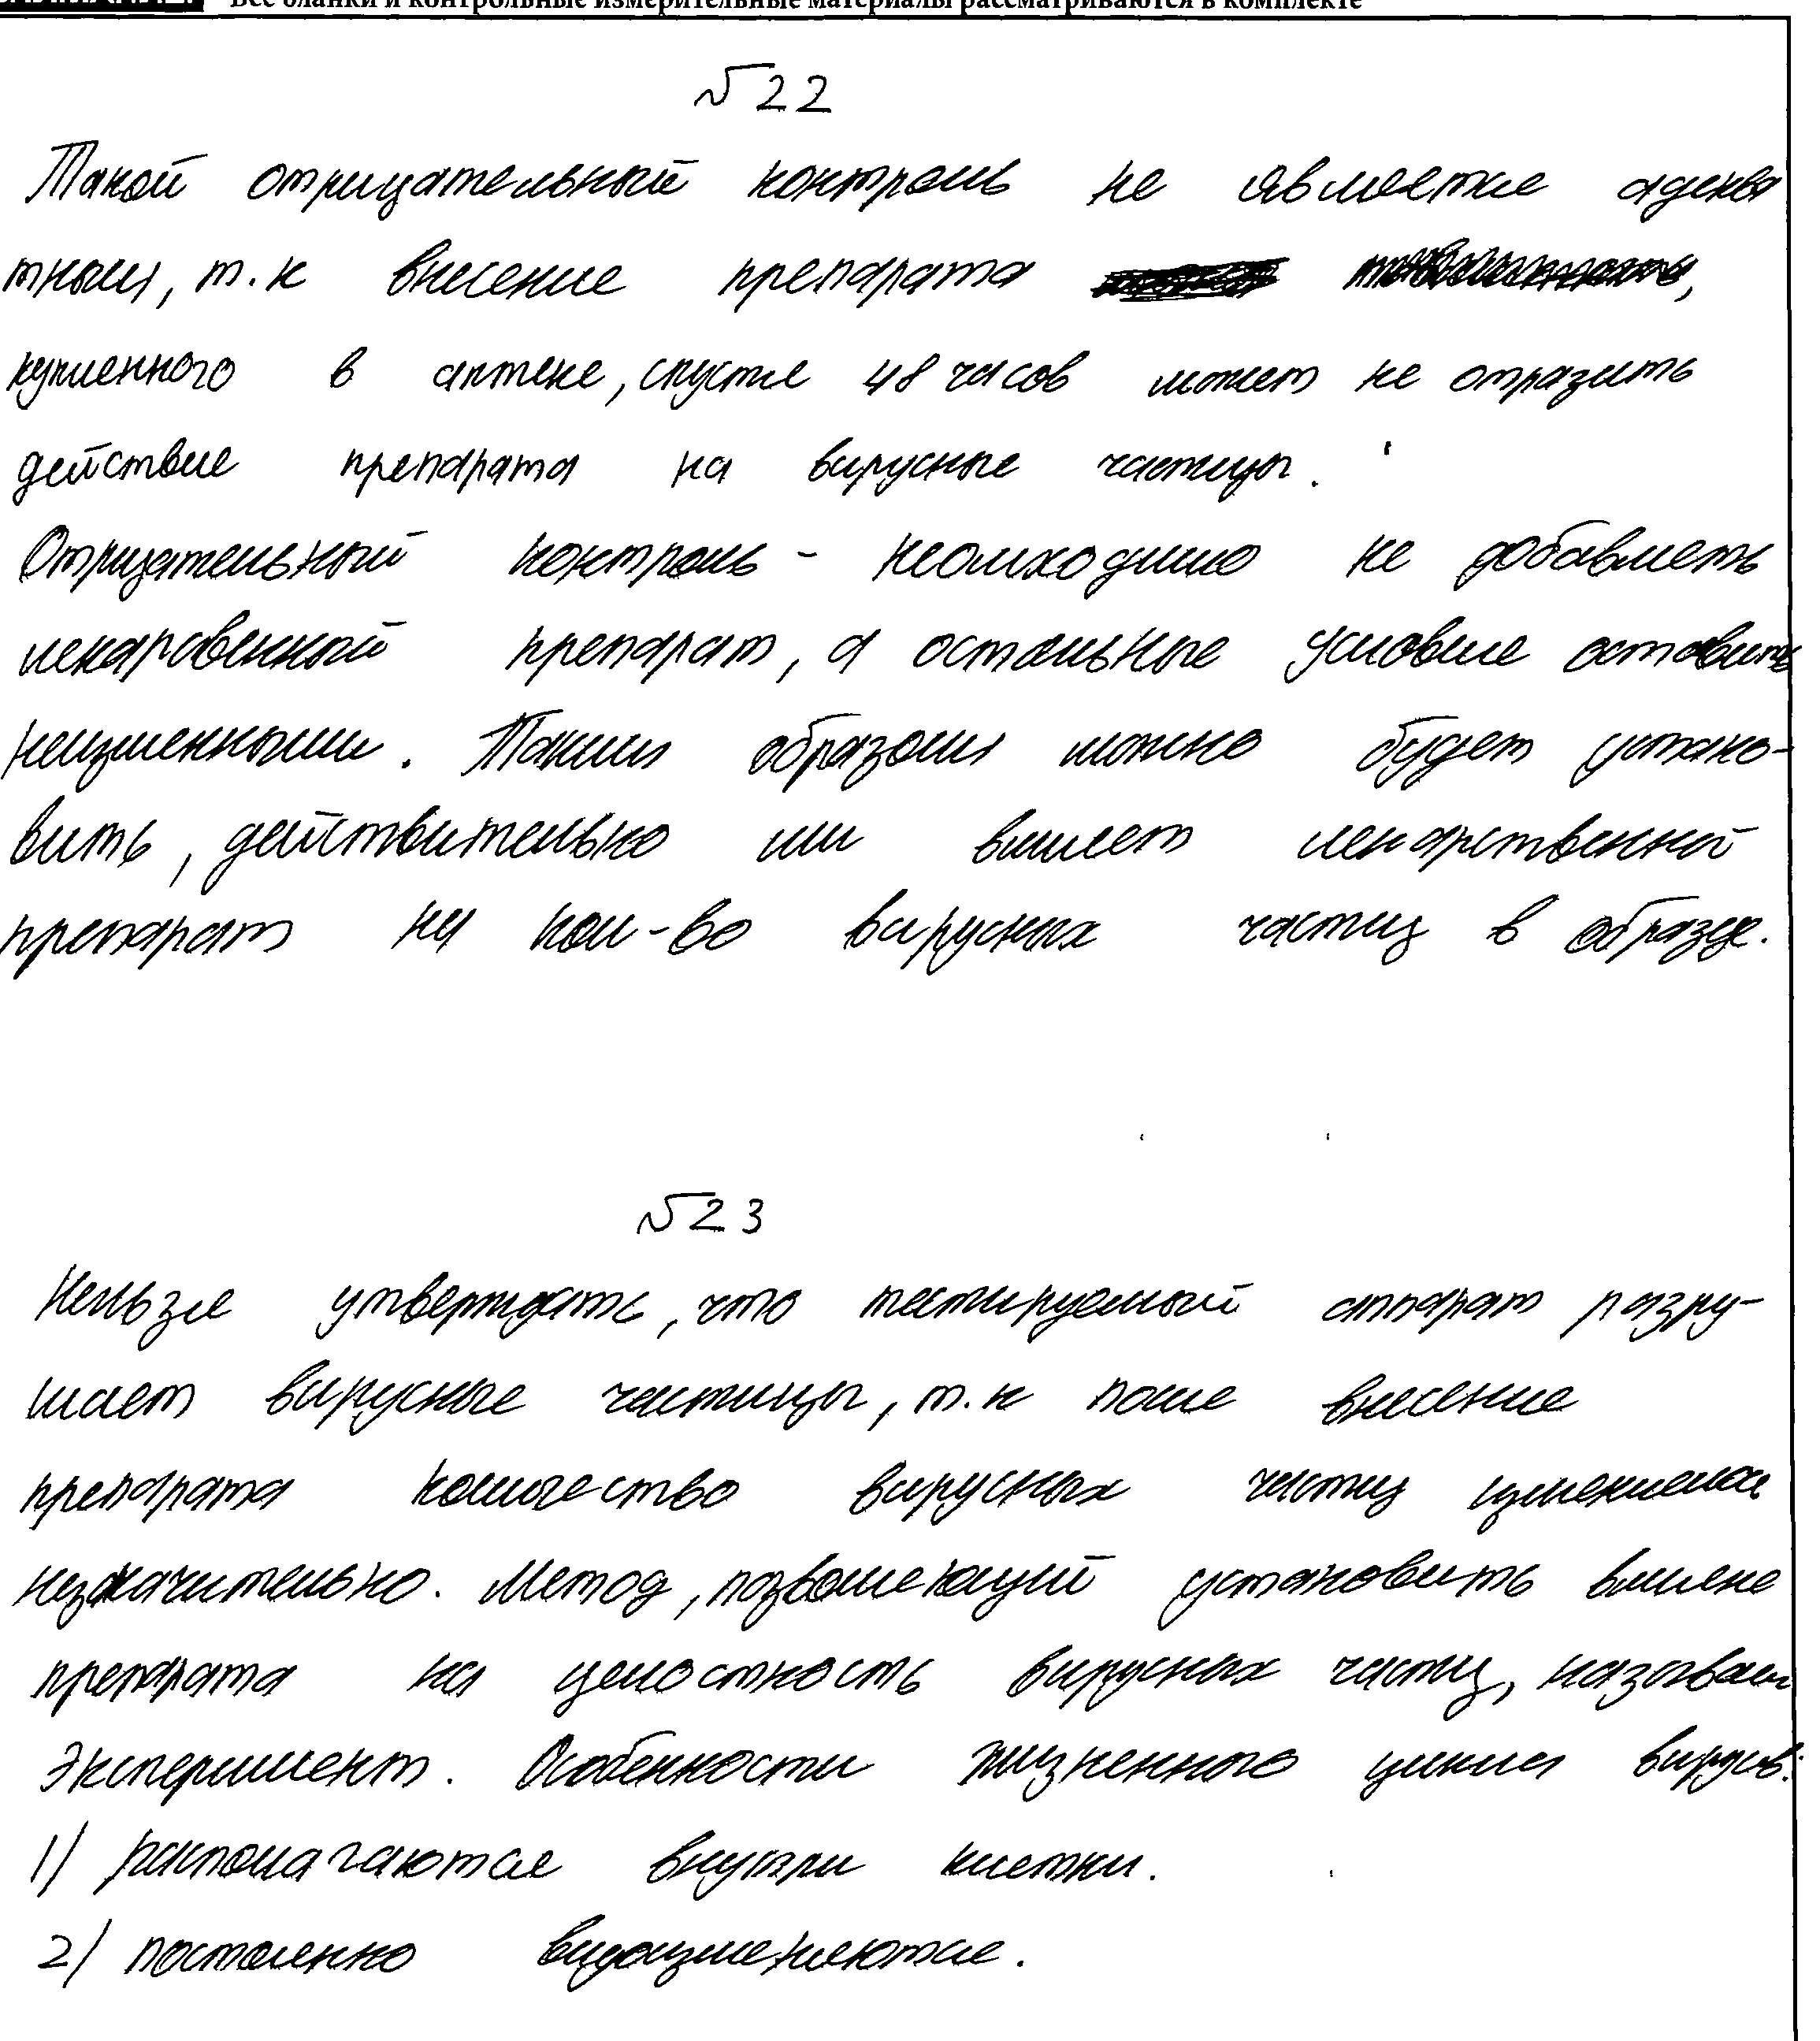 Все бланки и контрольные измерительные материалы рассматриваются в комплекте
№22
Такой отрицательный контроль не является адеква
тным, т.к внесение препарата ,
купленного в аптеке, спустя 48 часов может не отразить
действие препарата на вирусные частицы.
Отрицательный контроль - необходимо не добавлять
лекарственный препарат, а остальные условия оставить
неизменными. Таким образом можно будет устано-
вить, действительно ли влияет лекарственный
препарат на кол-во вирусных частиц в образце.
№23
Нельзя утверждать, что тестируемый аппарат разру-
шает вирусные частицы, т.к после внесения
препарата количество вирусных частиц изменилось
незначительно. Метод, позволяющий установить влияне
препарата на целостность вирусных частиц, называют
эксперимент. Особенности жизненного цикла вирусов:
1) располагаются внутри клетки.
2) постоянно видоизменяются.